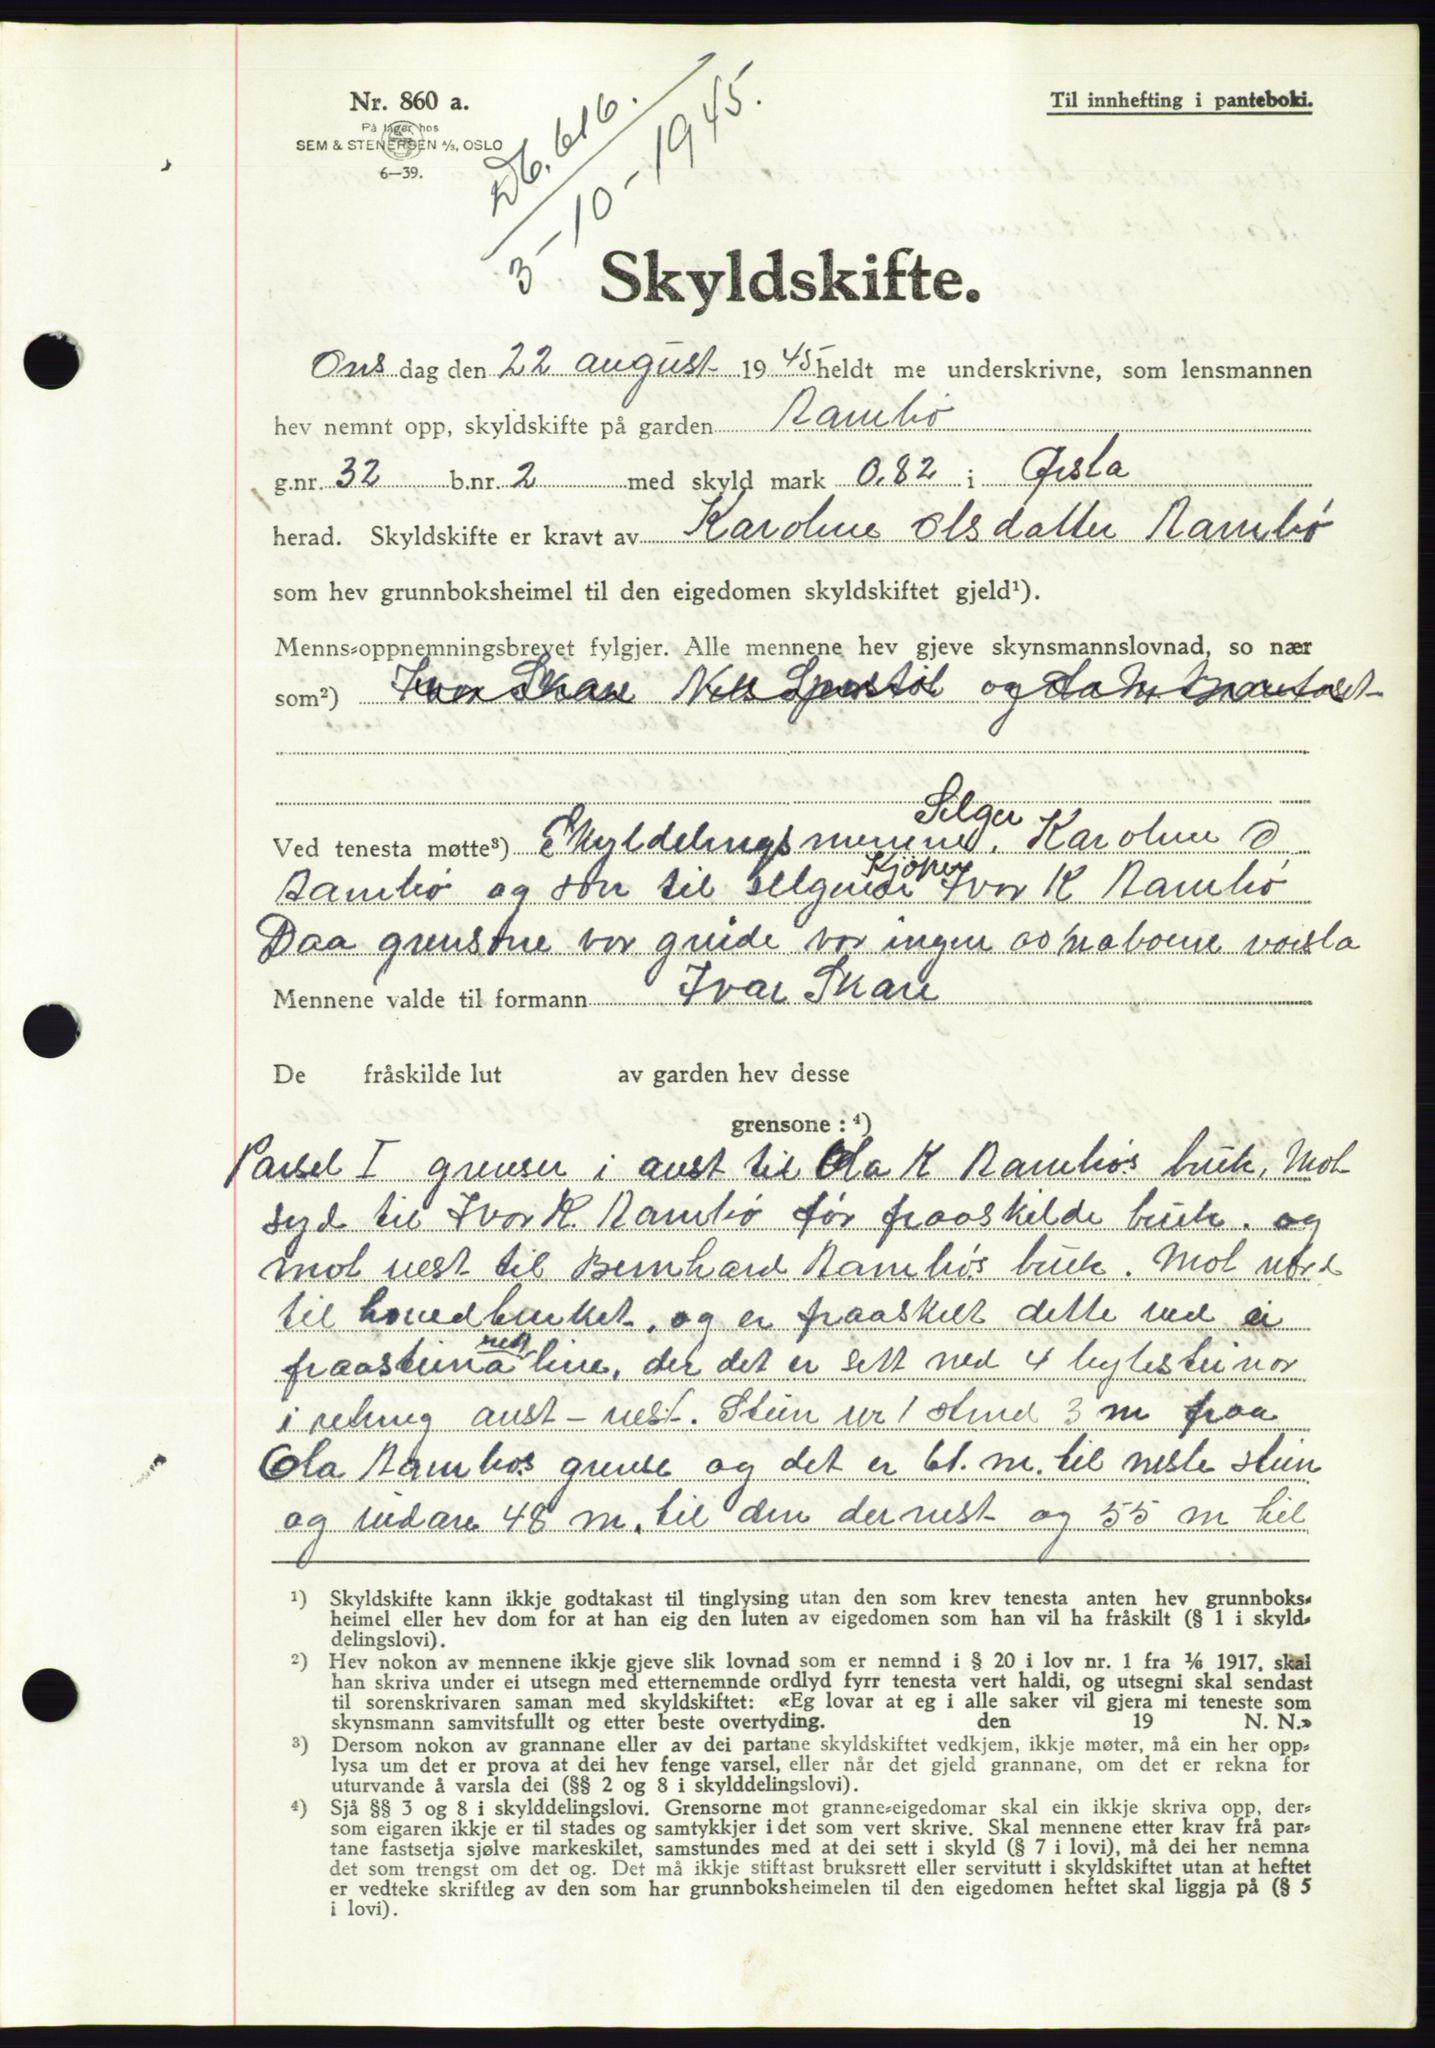 Nr. 860 a.
På lager hos
SEM & STENERSEN A/S, OSLO
6—39.
Db. 616.
3-10-1945.
Til innhefting i panteboki.
Skyldskifte.
Ons dag den 22 august 1945 heldt me underskrivne, som lensmannen
hev nemnt opp, skyldskifte på garden Aambø
g.nr. 32 b.nr. 2 med skyld mark 0.82 i Ørsta
herad. Skyldskifte er kravt av Karoline Olsdatter Aambø
som hev grunnboksheimel til den eigedomen skyldskiftet gjeld¹).
Menns-oppnemningsbrevet fylgjer. Alle mennene hev gjeve skynsmannslovnad, so nær
som²) Ivar Skare Nils og
Selger
Ved tenesta møtte³) Skyldelingsmennene, Karoline O
Kjöper
Aambø og son til selgeren Ivar K Aambø
Daa grensone var greide var ingen av naboene varsla
Mennene valde til formann Ivar Skare
De fråskilde lut av garden hev desse
grensone : ⁴)
Parsel I grenser i aust til Ola K Aambøs bruk. Mot
syd til Ivar K. Aambø før fraaskilde bruk. og
mot vest til Bernhard Aambøs bruk. Mot nord
til hovedbruket, og er fraaskilt dette ved ei
rett
fraasteina line, der det er sett ned 4 bytesteinar
i retning aust-vest. Stein nr 1 stend 3 m fraa
Ola Aambøs grense og det er 61. m. til neste stein
og vidare 48 m. til den dernest og 55 m til
¹) Skyldskifte kann ikkje godtakast til tinglysing utan den som krev tenesta anten hev grunnboks-
heimel eller hev dom for at han eig den luten av eigedomen som han vil ha fråskilt (§ 1 i skyld-
delingslovi).
²) Hev nokon av mennene ikkje gjeve slik lovnad som er nemnd i § 20 i lov nr. 1 fra 1/6 1917, skal
han skriva under ei utsegn med etternemnde ordlyd fyrr tenesta vert haldi, og utsegni skal sendast
til sorenskrivaren saman med skyldskiftet: «Eg lovar at eg i alle saker vil gjera mi teneste som
skynsmann samvitsfullt og etter beste overtyding. den 19 N. N.»
³) Dersom nokon av grannane eller av dei partane skyldskiftet vedkjem, ikkje møter, må ein her opp-
lysa um det er prova at dei hev fenge varsel, eller når det gjeld grannane, om det er rekna for
uturvande å varsla dei (§§ 2 og 8 i skylddelingslovi).
⁴) Sjå §§ 3 og 8 i skylddelingslovi. Grensorne mot granne-eigedomar skal ein ikkje skriva opp, der-
som eigaren ikkje er til stades og samtykkjer i det som vert skrive. Skal mennene etter krav frå par-
tane fastsetja sjølve markeskilet, samstundes med at dei sett i skyld (§ 7 i lovi), må dei her nemna
det som trengst om det og. Det må ikkje stiftast bruksrett eller servitutt i skyldskiftet utan at heftet
er vedteke skriftleg av den som har grunnboksheimelen til den eigedomen heftet skal liggja på (§ 5
i lovi).